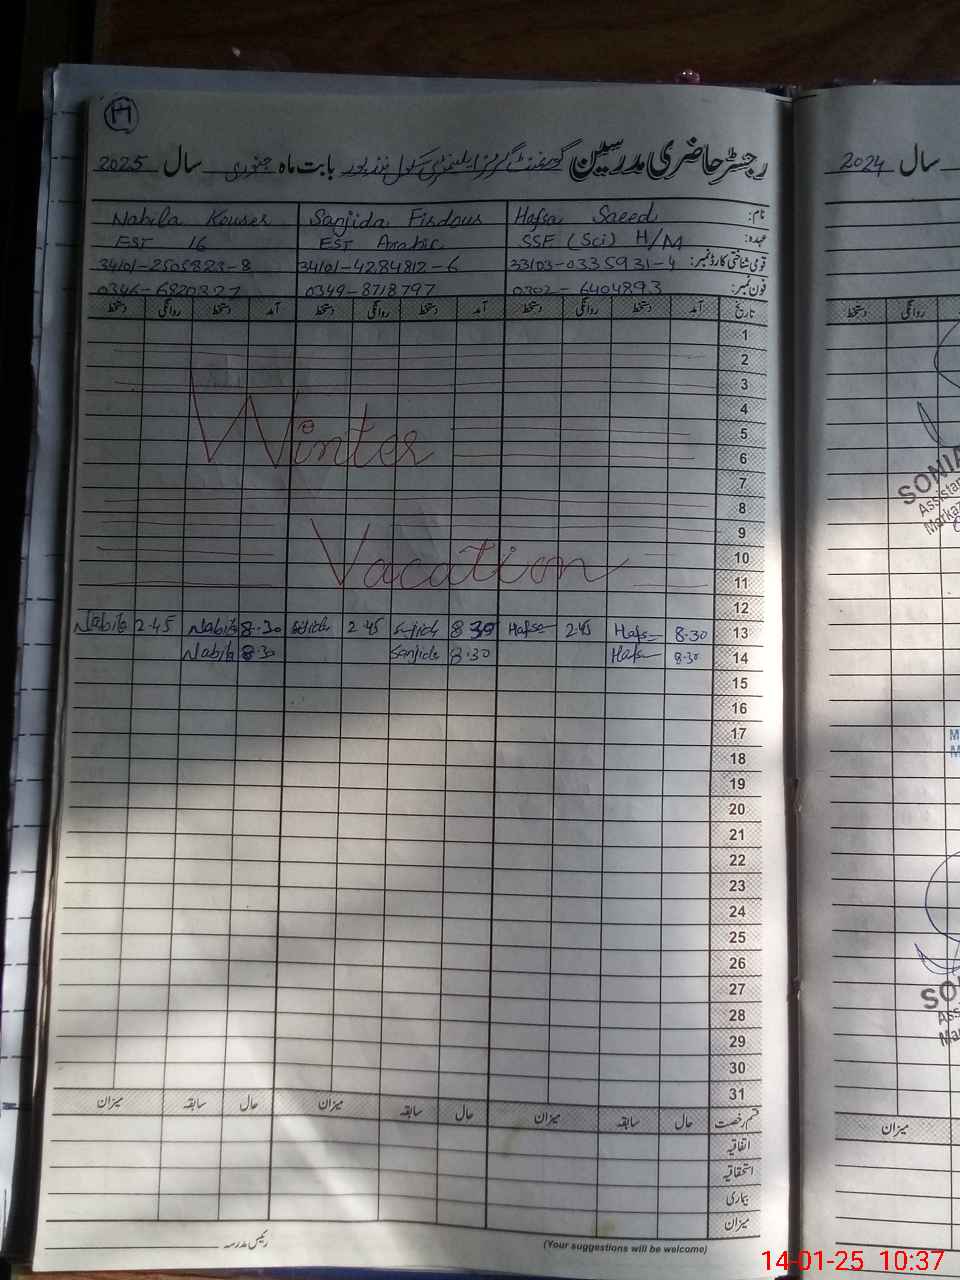 رجسٹر حاضری مدرسین گورنمنٹ گرلز ایلیمنٹری سکول بابت ماہ جنوری سال 2025
نام: Hafsa Saeed Sanjida Firdous Nabila Kouser
عہدہ: SSE (Sci) H/M EST Arabic EST 16
قومی شناختی کارڈ نمبر: 33103-0335931-4 34101-4284812-6 34101-2505823-8
فون نمبر: 0302-6404893 0349-8718797 0346-6820327
تاریخ آمد دستخط روانگی دستخط آمد دستخط روانگی دستخط آمد دستخط روانگی دستخط
1
2
3
4
Winter
5
6
7
8
9
10
Vacation
11
12
13 8.30 Hafsa 2.45 Hafsa 8.30 Sanjida 2.45 Sanjida 8.30 Nabila 2.45 Nabila
14 8.30 Hafsa 8.30 Sanjida 8.30 Nabila
15
16
17
18
19
20
21
22
23
24
25
26
27
28
29
30
31
قسم رخصت حال سابقہ میزان حال سابقہ میزان حال سابقہ میزان
اتفاقیہ
استحقاقیہ
بیماری
میزان
رئیس مدرسہ
(Your suggestions will be welcome)
سال 2024
روانگی دستخط
SONIA
Assistan
Markaz
M
M
SO
Ass
Ma
میزان
14-01-25 10:37